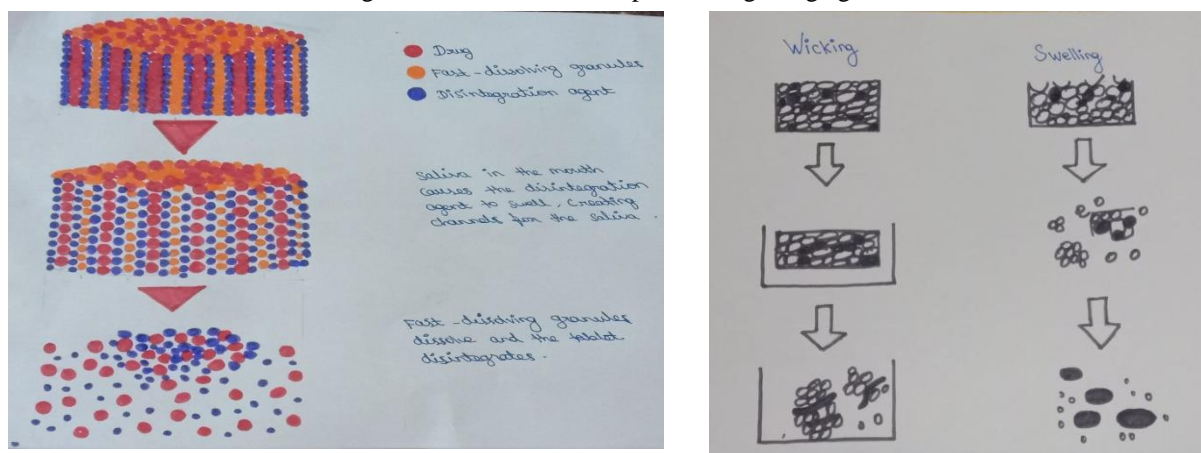 Drug
Fast-dissolving granules
Disintegration agent
Saliva in the mouth
causes the disintegration
agent to swell, creating
channels for the saliva.
Fast-dissolving granules
dissolve and the tablet
disintegrates.
Wicking
Swelling